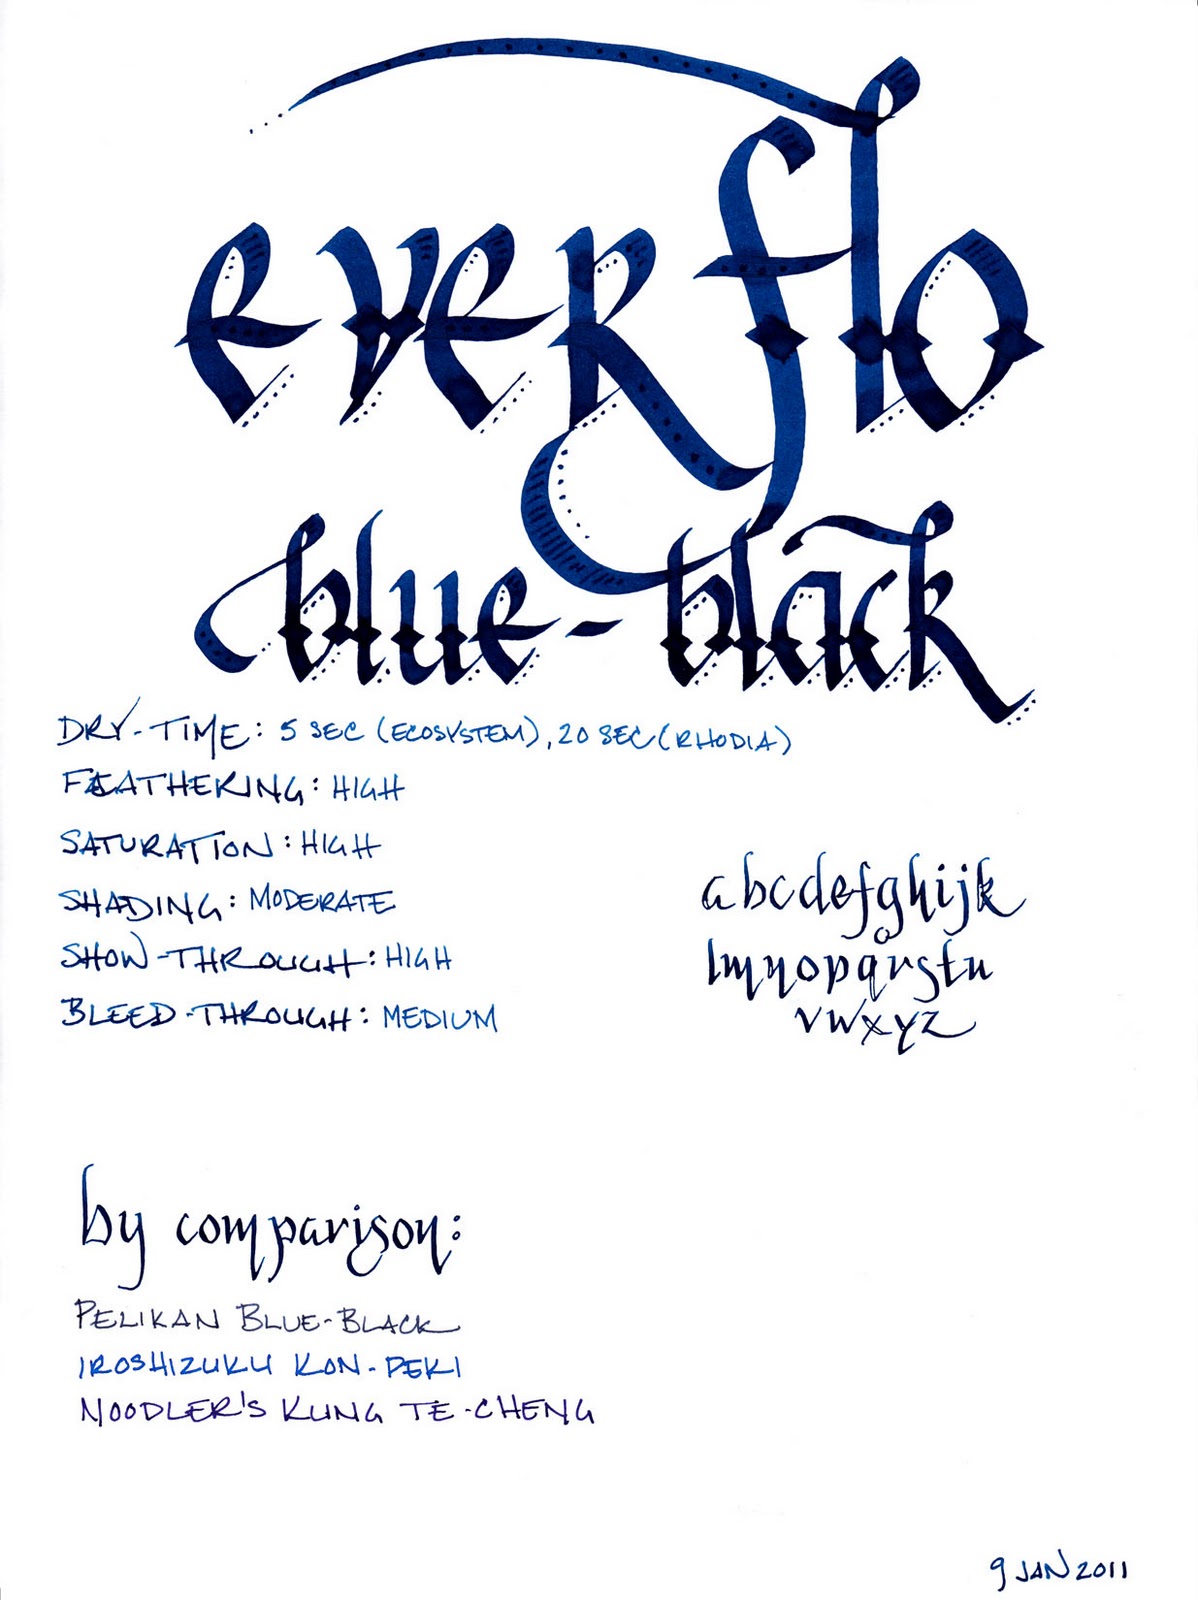 everflo
blue-black
DRY-TIME: 5 SEC (ECOSYSTEM), 20 SEC (RHODIA)
FEATHERING: HIGH
SATURATION: HIGH
SHADING: MODERATE
SHOW-THROUGH: HIGH
BLEED-THROUGH: MEDIUM
abcdefghijk
lmnopqrstu
vwxyz
by comparison:
PELIKAN BLUE-BLACK
IROSHIZUKU KON-PEKI
NOODLER'S KUNG TE-CHENG
9 JAN 2011